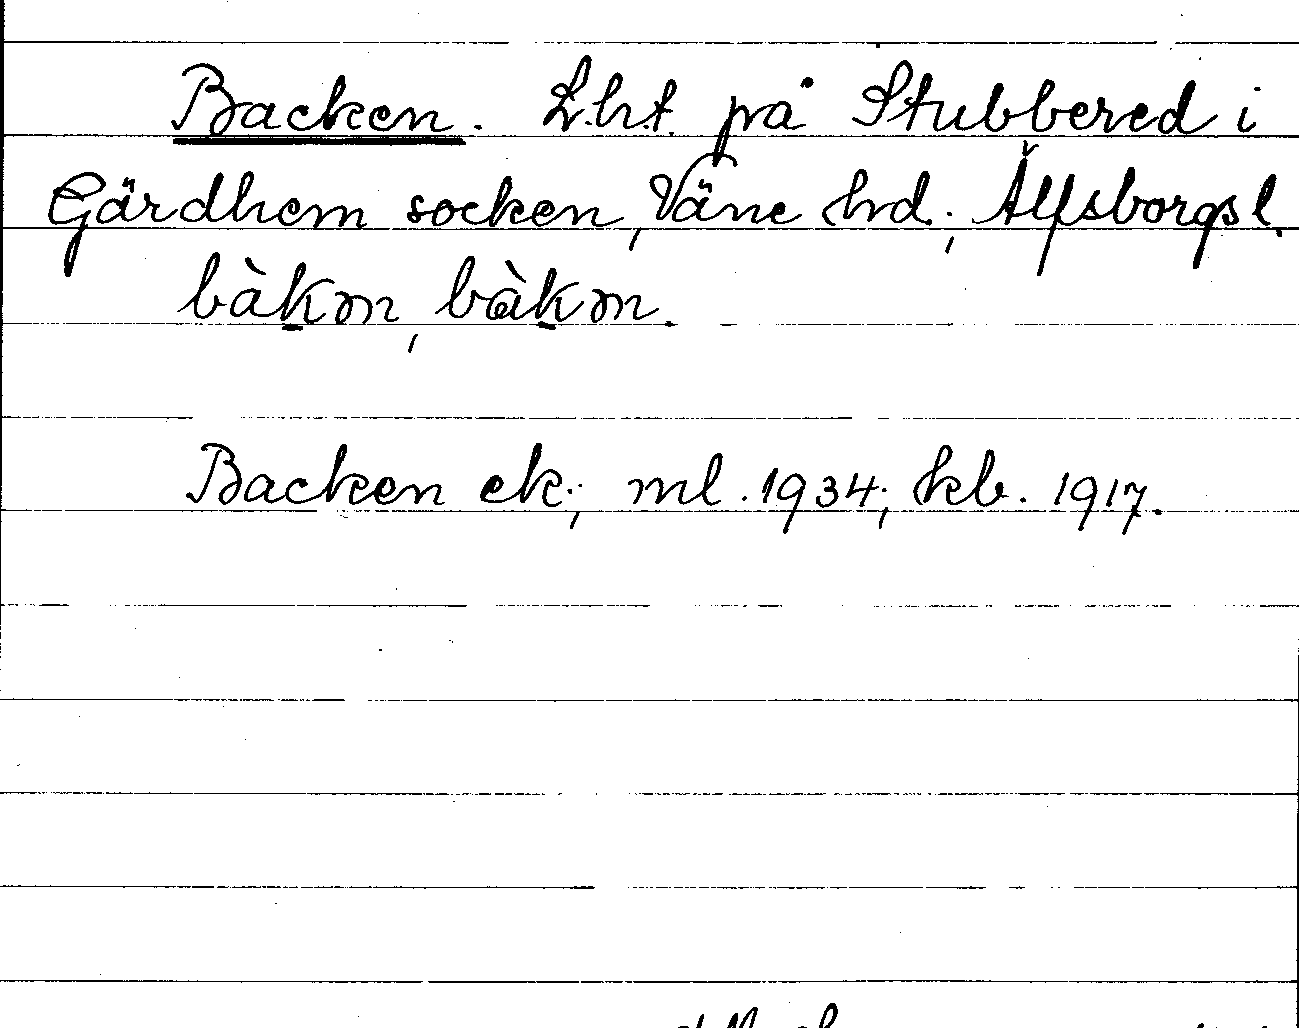 Backen. L.h.t. på Stubbered i
Gärdhem socken, Väne hd., Älfsborgs l.
bàk̲m, bàk̲m.
Backen ek.; ml. 1934; kb. 1917.